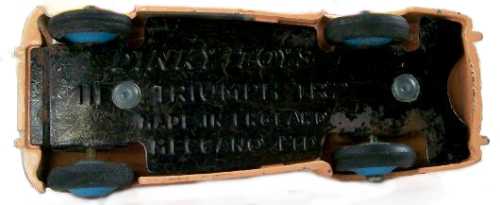 DINKY TOYS
111 TRIUMPH TR2
MADE IN ENGLAND
MECCANO LTD